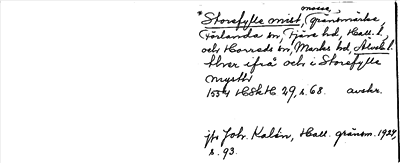 mosse,
*Storefylle mist, gränsmärke,
Förlanda sn, Fjäre hd, Hall. l.
och Horreds sn, Marks hd, Älvsb. l.
thver ifrå och i Storefylle
myst
1554 HSkH 29, s. 68. avskr.
jfr Joh. Kalén, Hall. gränsm. 1924,
s. 93.